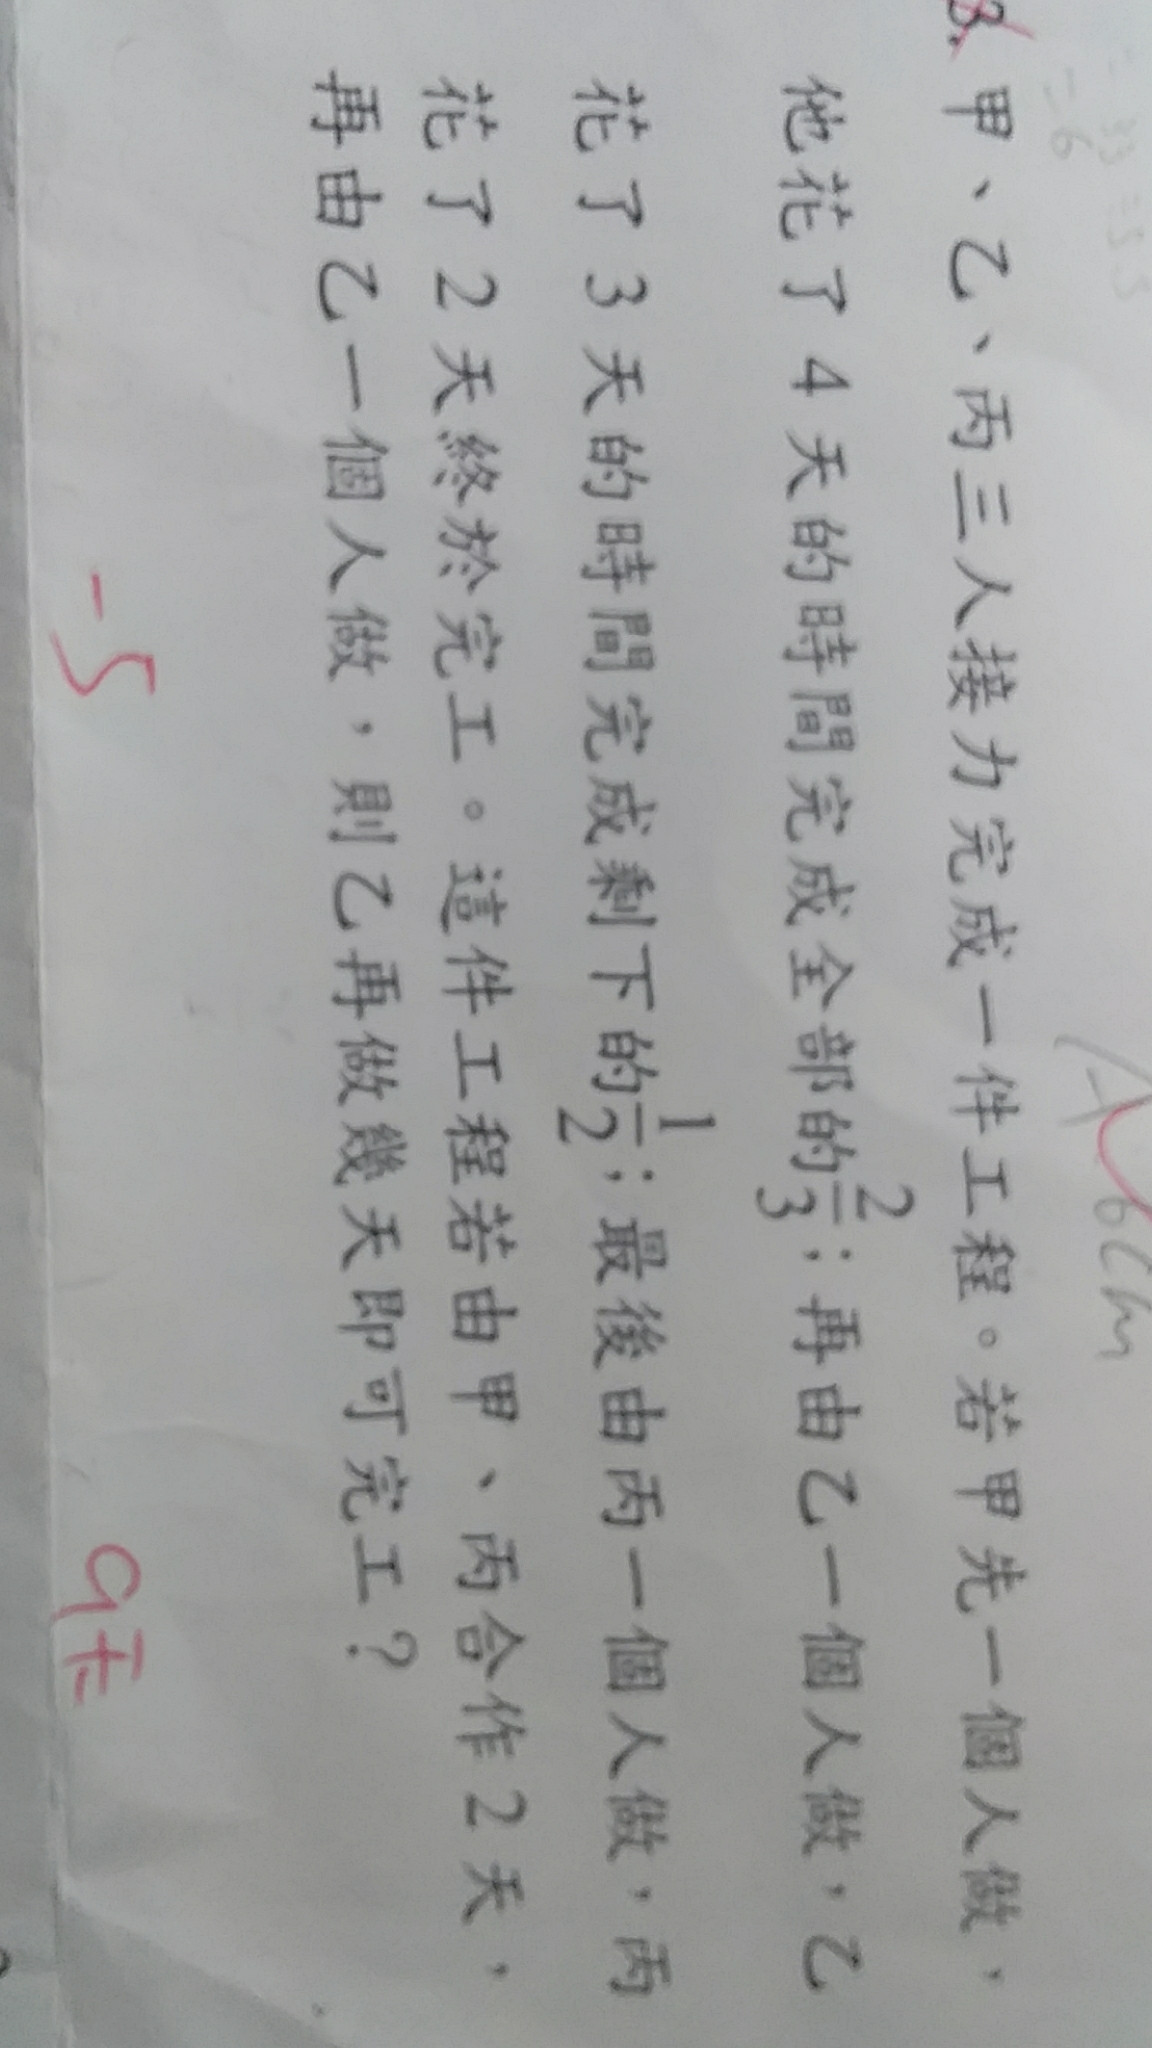 3. 甲、乙、丙三人接力完成一件工程。若甲先一個人做，
他花了4天的時間完成全部的2/3；再由乙一個人做，乙
花了3天的時間完成剩下的1/2；最後由丙一個人做，丙
花了2天終於完工。這件工程若由甲、丙合作2天，
再由乙一個人做，則乙再做幾天即可完工？
-5
9天